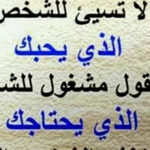 لا تسيئ للشخص
الذي يحبك
قول مشغول للش
الذي يحتاجك